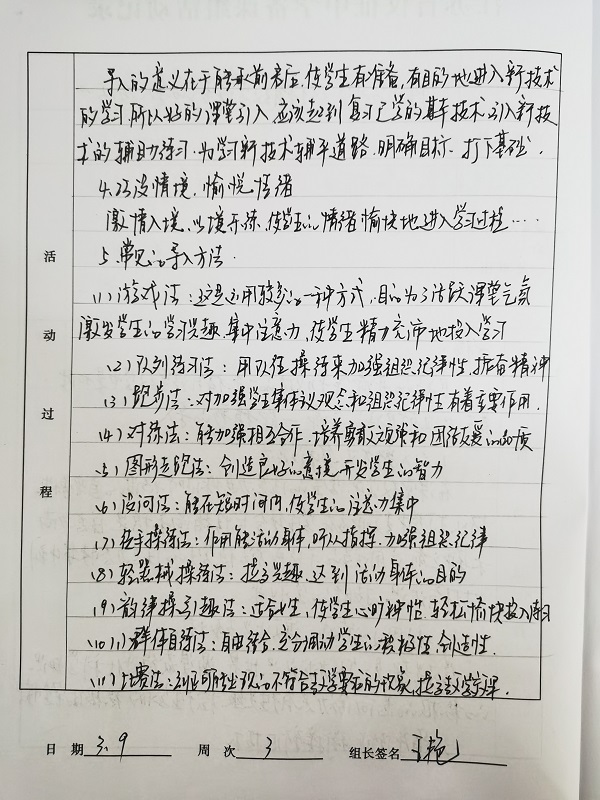 导入的意义在于能承前启后,使学生有准备,有目的地进入新技术
的学习,所以好的课堂引入应该起到复习已学的基本技术,引入新技
术的辅助练习,为学习新技术铺平道路,明确目标,打下基础.
4.巧设情境,愉悦情绪
激情入境,以境开练,使学生的情绪愉快地进入学习过程……
5.常见的导入方法.
(1)游戏法:这是运用较多的一种方式,目的为了活跃课堂气氛
激发学生的学习兴趣,集中注意力,使学生精力充沛地投入学习
(2)队列练习法:用队伍操练来加强组织纪律性,振奋精神
(3)跑步法:对加强学生集体主义观念和组织纪律性有着重要作用.
(4)对练法:能加强相互合作,培养勇敢顽强和团结友爱的品质
(5)图形走跑法:创造良好的意境,开发学生的智力
(6)设问法:能在短时间内,使学生的注意力集中
(7)徒手操练法:作用能活动身体,听从指挥,加强组织纪律
(8)轻器械操练法:提高兴趣,达到活动身体的目的
(9)韵律操引趣法:适合女生,使学生心旷神怡,轻松愉快投入练习
(10)群体自练法:自由结合,充分调动学生的积极性,创造性.
(11)比赛法:可能出现的不符合教学要求的现象,提高教学效果.
活
动
过
程
日 期 3.9 周 次 3 组长签名 王艳